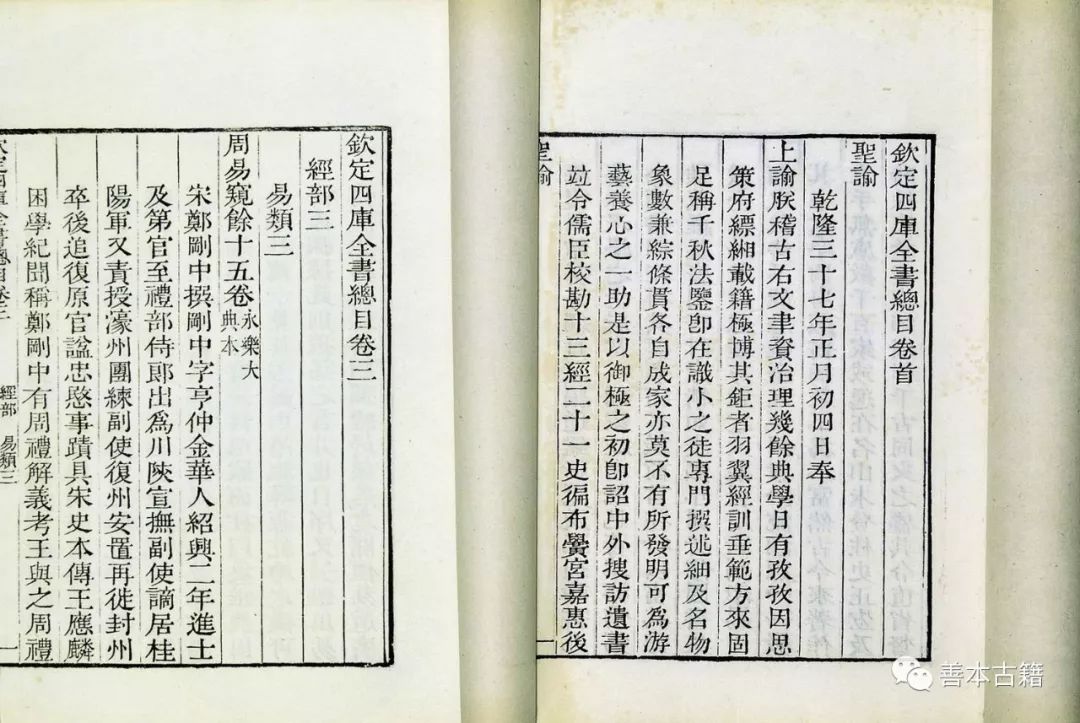 欽定四庫全書總目卷首
聖諭
乾隆三十七年正月初四日奉
上諭朕稽古右文聿資治理幾餘典學日有孜孜因思
策府縹緗載籍極博其鉅者羽翼經訓垂範方來固
足稱千秋法鑒卽在識小之徒專門撰述細及名物
象數兼綜條貫各自成家亦莫不有所發明可為游
藝養心之一助是以御極之初卽詔中外搜訪遺書
竝令儒臣校勘十三經二十一史徧布黌宮嘉惠後
聖諭
一
欽定四庫全書總目卷三
經部三
易類三
周易窺餘十五卷永樂大
典本
宋鄭剛中撰剛中字亨仲金華人紹興二年進士
及第官至禮部侍郞出為川陝宣撫副使謫居桂
陽軍又責授濠州團練副使復州安置再徙封州
卒後追復原官諡忠愍事蹟具宋史本傳王應麟
困學紀聞稱鄭剛中有周禮解義考王與之周禮
欽定四庫全書總目卷三
經部 易類三
一
善本古籍